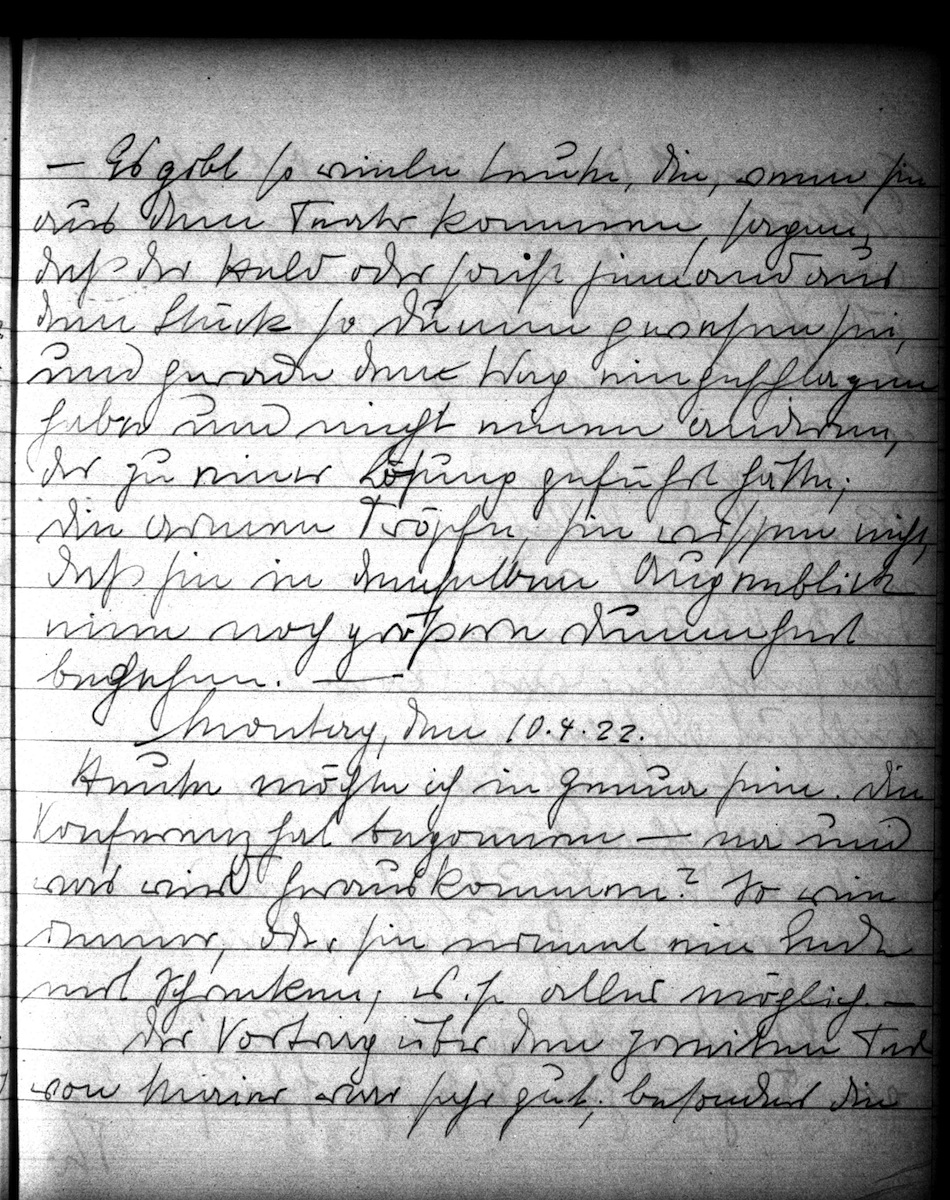 — Es gibt so viele Leute, die, wenn sie
aus dem Teater kommen, sagen,
daß der Held oder sonst jemand aus
dem Stück so dumm gewesen sei,
und gerade den Weg eingeschlagen
habe und nicht einen anderen,
der zu einer Lösung geführt hätte;
die armen Tröpfe, sie wissen nicht,
daß sie in demselben Augenblick
eine noch größere Dummheit
begehen. —
Montag, den 10.4.22.
Heute möchte ich in Genua sein. Die
Konferenz hat begonnen — na und
was wird herauskommen? So wie
immer, oder sie nimmt ein Ende
mit Schrecken, es ist alles möglich. —
Der Vortrag über den zweiten Teil
von Maier war sehr gut, besonders die